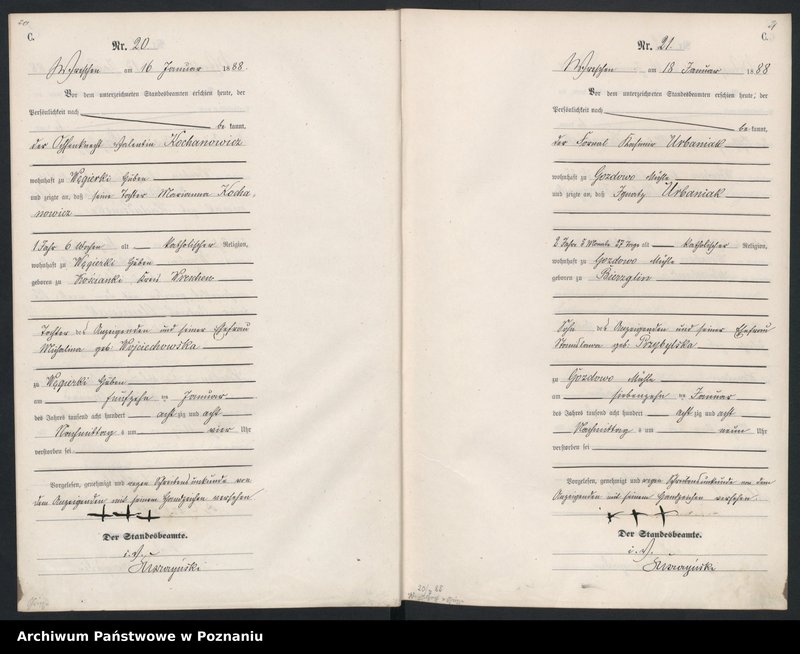 C.
Nr. 20
Wreschen am 16 Januar 1888.
Vor dem unterzeichneten Standesbeamten erschien heute, der
Persönlichkeit nach
be kannt,
der Ochsenknecht Valentin Kochanowicz
wohnhaft zu Węgierki Huben
und zeigte an, daß seine Tochter Marianna Kocha-
nowicz
1 Jahr 6 Wochen alt katholischer Religion,
wohnhaft zu Węgierki Huben
geboren zu Kościanki Kreis Wreschen
Tochter des Anzeigenden und seiner Ehefrau
Michalina geb. Wojciechowska
zu Węgierki Huben
am fünfzehn ten Januar
des Jahres tausend acht hundert acht zig und acht
Nachmittag s um vier Uhr
verstorben sei
Vorgelesen, genehmigt und wegen Schreibensunkunde von
dem Anzeigenden mit seinem Handzeichen versehen
+++
Der Standesbeamte.
i. V.
21
C.
Nr. 21
Wreschen am 18 Januar 1888
Vor dem unterzeichneten Standesbeamten erschien heute, der
Persönlichkeit nach
be kannt,
der Fornal Kasimir Urbaniak
wohnhaft zu Gozdowo Mühle
und zeigte an, daß Ignatz Urbaniak
2 Jahre 5 Monate 27 Tage alt katholischer Religion,
wohnhaft zu Gozdowo Mühle
geboren zu
Sohn des Anzeigenden und seiner Ehefrau
Stanislawa geb. Przybylska
zu Gozdowo Mühle
am siebenzehn ten Januar
des Jahres tausend acht hundert acht zig und acht
Nachmittag s um neun Uhr
verstorben sei
Vorgelesen, genehmigt und wegen Schreibensunkunde von dem
Anzeigenden mit seinem Handzeichen versehen.
+++
Der Standesbeamte.
i. V.
Archiwum Państwowe w Poznaniu